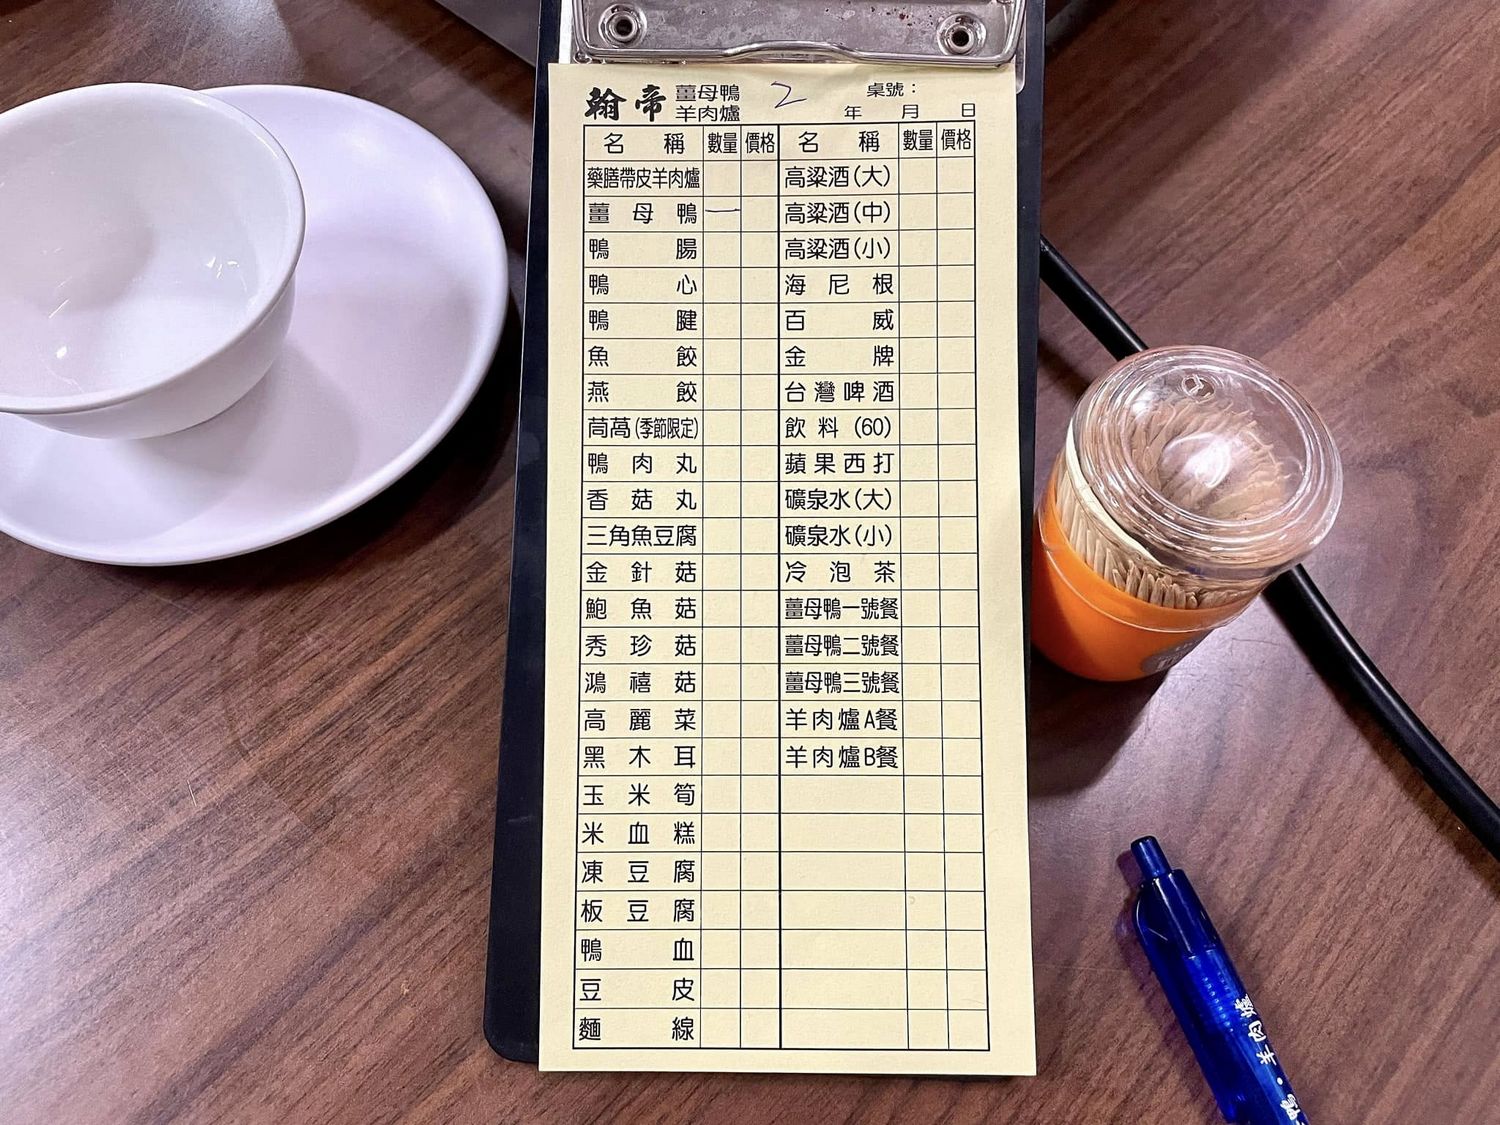 翰帝 薑母鴨 羊肉爐 2 桌號：
年 月 日
名稱 數量 價格 名稱 數量 價格
藥膳帶皮羊肉爐 高粱酒(大)
薑母鴨 一 高粱酒(中)
鴨腸 高粱酒(小)
鴨心 海尼根
鴨腱 百威
魚餃 金牌
燕餃 台灣啤酒
茼萵(季節限定) 飲料(60)
鴨肉丸 蘋果西打
香菇丸 礦泉水(大)
三角魚豆腐 礦泉水(小)
金針菇 冷泡茶
鮑魚菇 薑母鴨一號餐
秀珍菇 薑母鴨二號餐
鴻禧菇 薑母鴨三號餐
高麗菜 羊肉爐A餐
黑木耳 羊肉爐B餐
玉米筍
米血糕
凍豆腐
板豆腐
鴨血
豆皮
麵線
鴨·羊肉爐